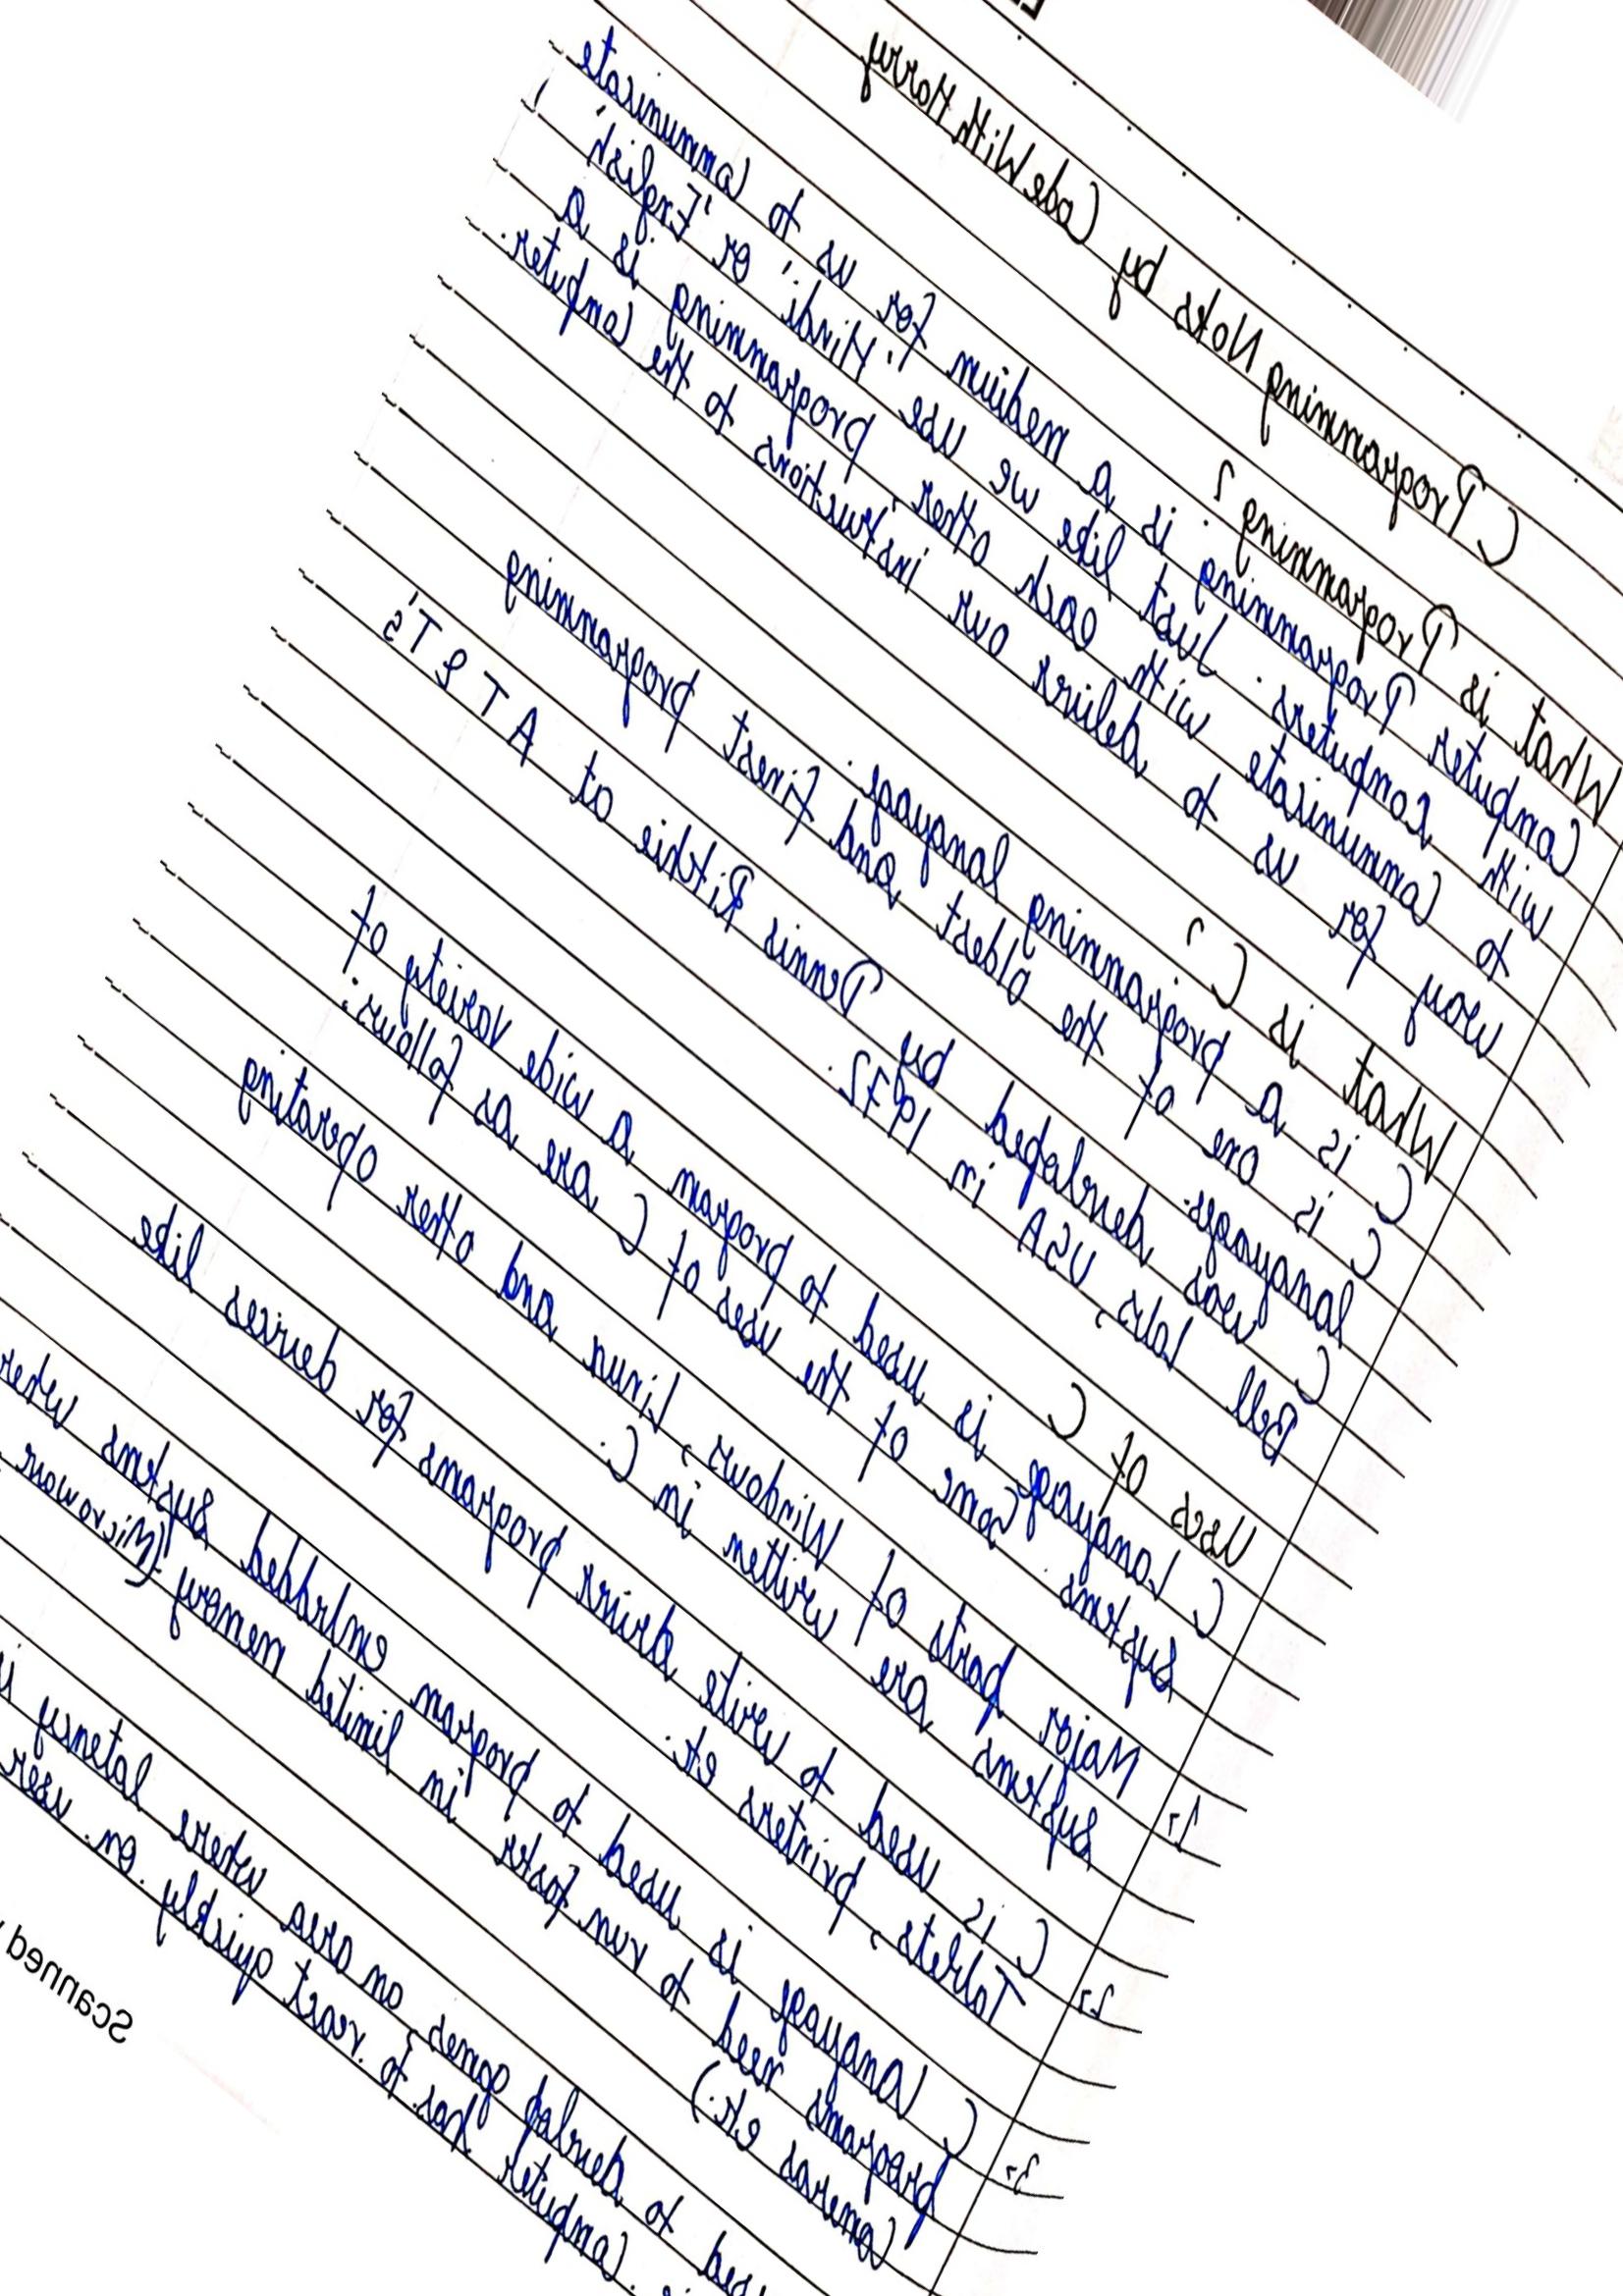 C Programming Notes by CodeWithHarry
What is Programming ?
Computer Programming is a medium for us to Communicate
with Computers. Just like we use 'Hindi' or 'English'
to Communicate with each other, programming is a
way for us to deliver our instructions to the Computer.
What is C ?
C is a programming language.
C is one of the oldest and finest programming
languages.
C was developed by Dennis Ritchie at AT&T's
Bell Labs, USA in 1972.
Uses of C
C Language is used to program a wide variety of
systems. Some of the uses of C are as follows:
1→ Major parts of Windows, Linux and other operating
systems are written in C.
2→ C is used to write driver programs for devices like
Tablets, printers etc.
3→ C language is used to program embedded systems where
programs need to run faster in limited memory (Microwave,
Cameras etc.)
used to develop games, an area where latency
Computer has to react quickly on user
Scanned